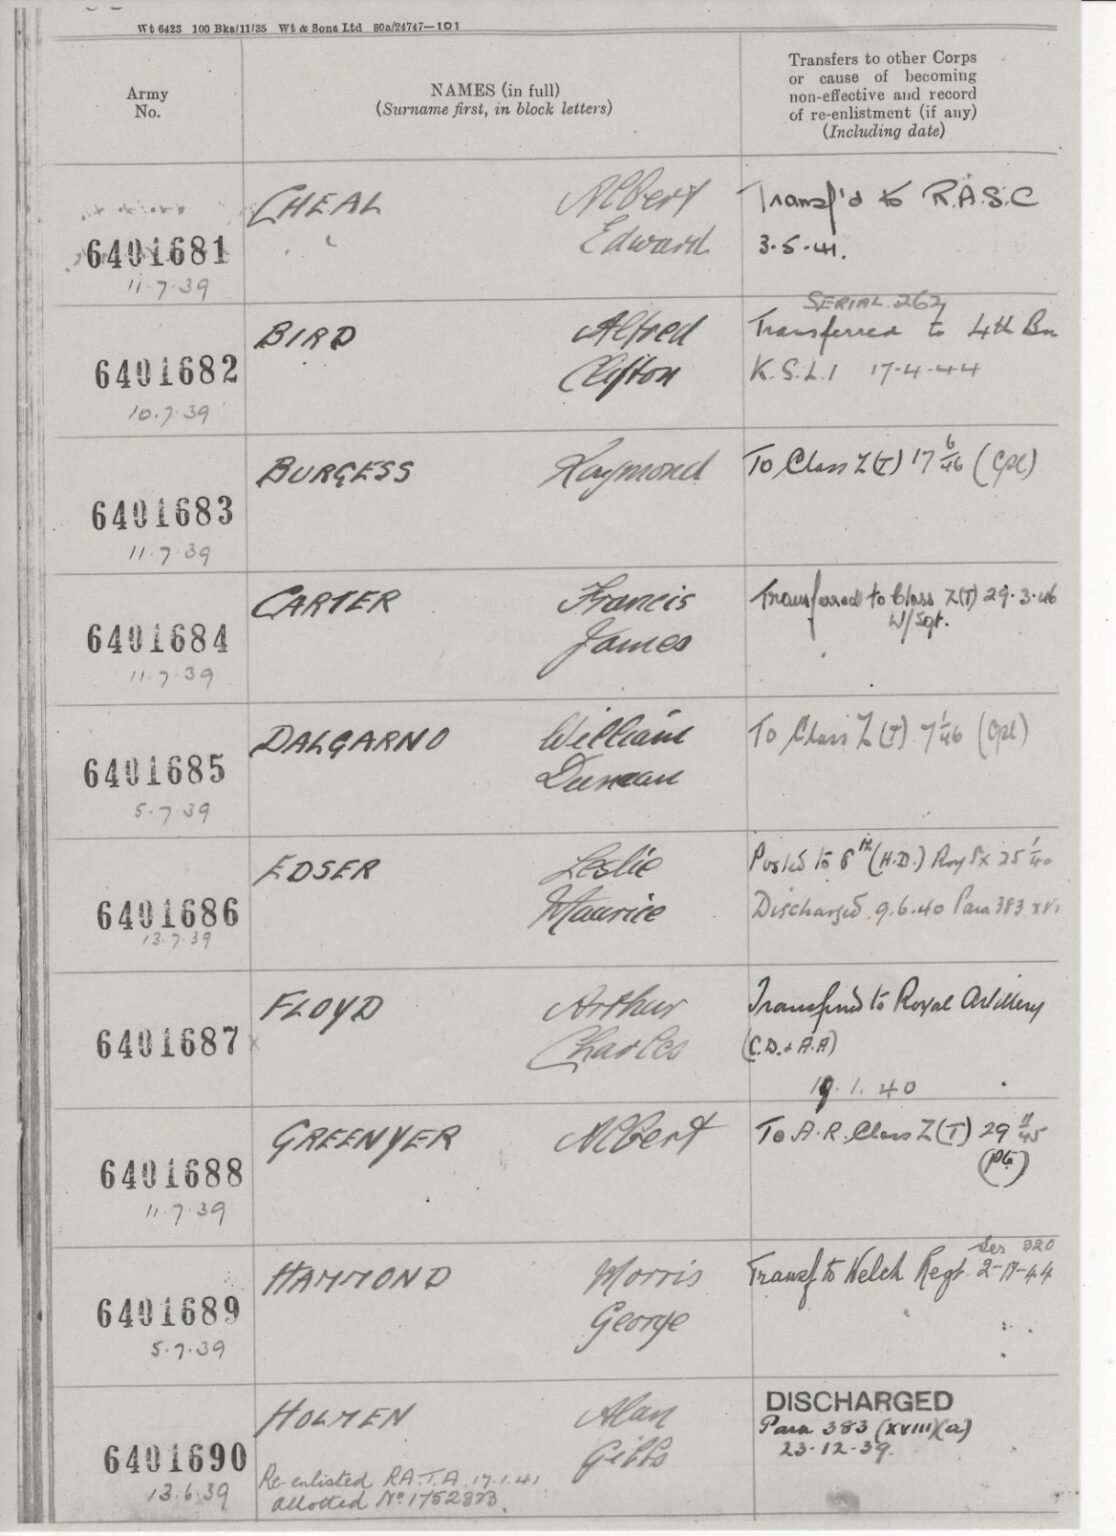 Wt 6423 100 Bks/11/35 Wt & Sons Ltd 80a/24747—101
Army
No.
NAMES (in full)
(Surname first, in block letters)
Transfers to other Corps
or cause of becoming
non-effective and record
of re-enlistment (if any)
(Including date)
6401681
11-7-39
CHEAL
Albert
Edward
Transf'd to R.A.S.C
3.5.41.
6401682
10.7.39
BIRD
Alfred
Clifton
SERIAL 262
Transferred to 4th Bn
K.S.L.I 17-4-44
6401683
11.7.39
BURGESS
Raymond
To Class Z(T) 17 6/46 (Cpl)
6401684
11.7.39
CARTER
Francis
James
Transferred to Class Z(T) 29.3.46
W/Sgt.
6401685
5.7.39
DALGARNO
William
Duncan
To Class Z(T) 7 1/46 (Cpl)
6401686
13.7.39
EDSER
Leslie
Maurice
Posted to 8th (H.D.) Roy Sx 25 1/40
Discharged 9.6.40 Para 383 xvi
6401687
FLOYD
Arthur
Charles
Transferred to Royal Artillery
(C.D. & A.A)
19.1.40
6401688
11.7.39
GREENYER
Albert
To A.R. Class Z(T) 29 11/45
(Pte)
6401689
5.7.39
HAMMOND
Morris
George
Ser 320
Transf to Welch Regt 2-11-44
6401690
13.6.39
HOLMEN
Alan
Gibbs
Re-enlisted R.A.T.A. 17.1.41
allotted No.
DISCHARGED
Para 383 (xviii)(a)
23.12.39.